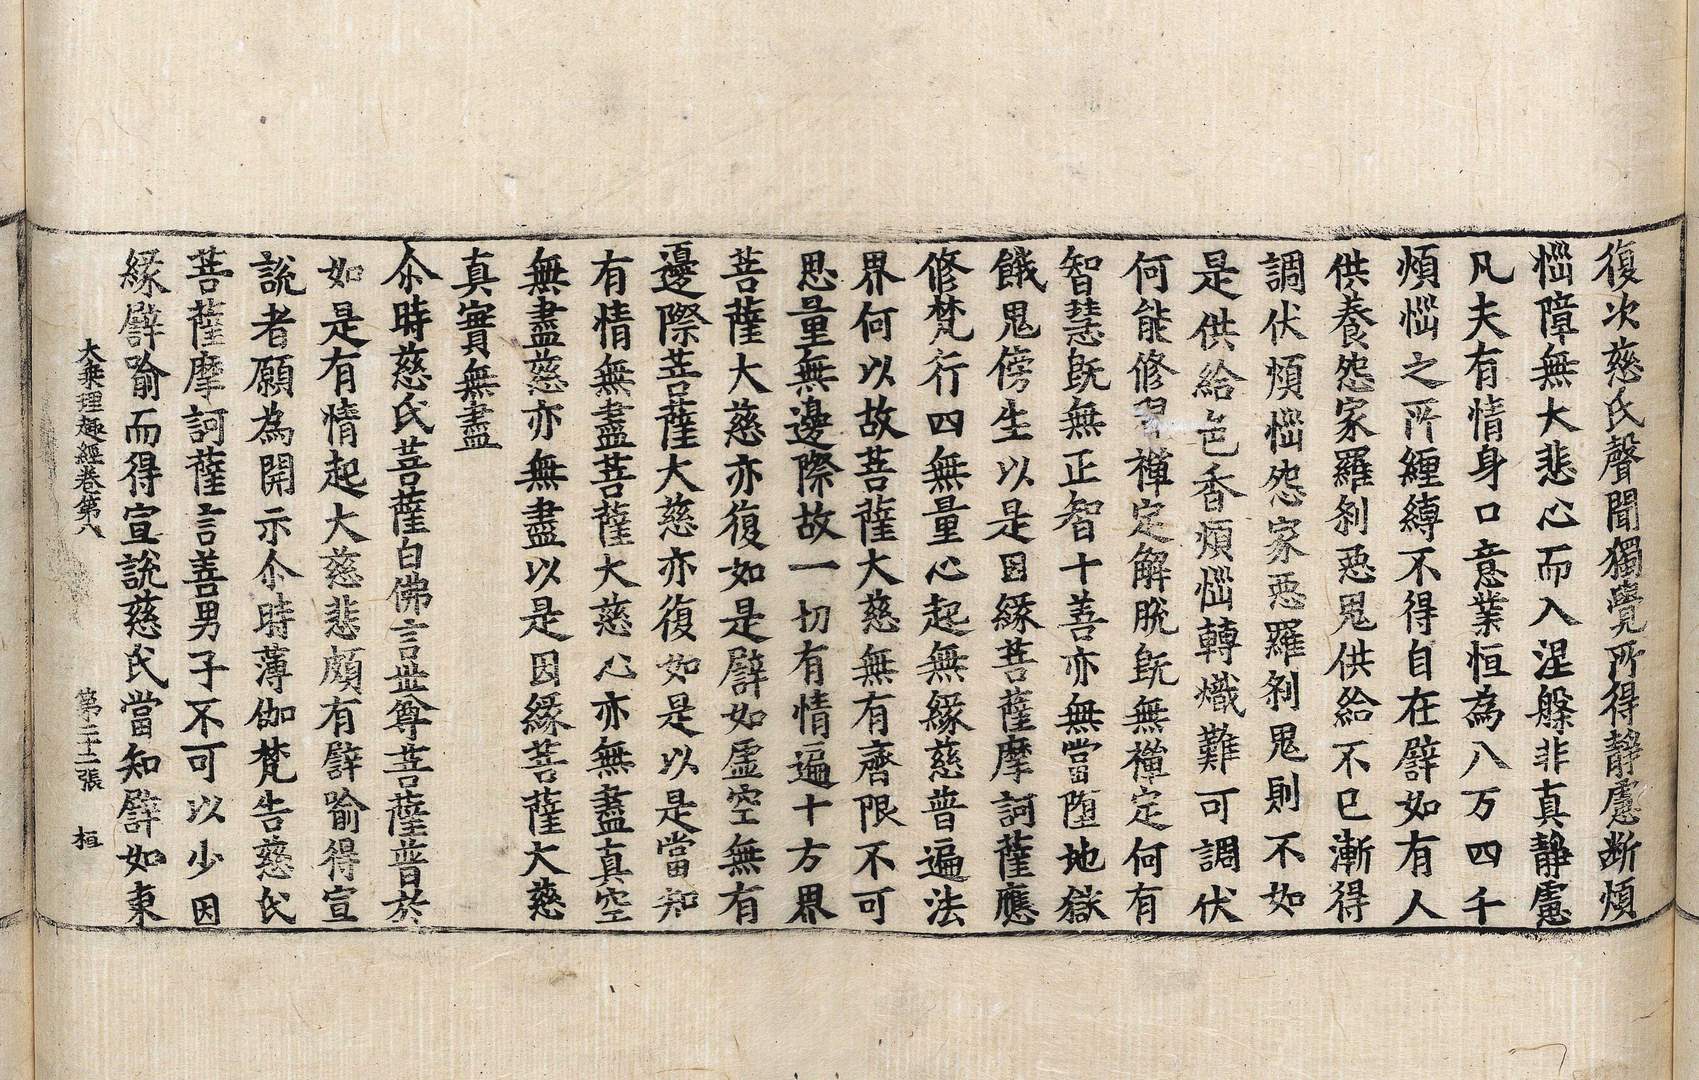 復次慈氏聲聞獨覺所得靜慮断煩
惱障無大悲心而入涅槃非真靜慮
凡夫有情身口意業恒為八万四千
煩惱之所纏縛不得自在譬如有人
供養怨家羅剎惡鬼供給不已漸得
調伏煩惱怨家惡羅剎鬼則不如
是供給色香煩惱轉熾難可調伏
何能修習禪定解脫旣無禪定何有
智慧旣無正智十善亦無當墮地獄
餓鬼傍生以是因緣菩薩摩訶薩應
修梵行四無量心起無緣慈普遍法
界何以故菩薩大慈無有齊限不可
思量無邊際故一切有情遍十方界
菩薩大慈亦復如是譬如虛空無有
邊際菩薩大慈亦復如是以是當知
有情無盡菩薩大慈心亦無盡真空
無盡慈亦無盡以是因緣菩薩大慈
真實無盡
尒時慈氏菩薩白佛言世尊菩薩普於
如是有情起大慈悲頗有譬喻得宣
說者願為開示尒時薄伽梵告慈氏
菩薩摩訶薩言善男子不可以少因
緣譬喻而得宣說慈氏當知譬如東
大乘理趣經卷第八 第二十二張 桓